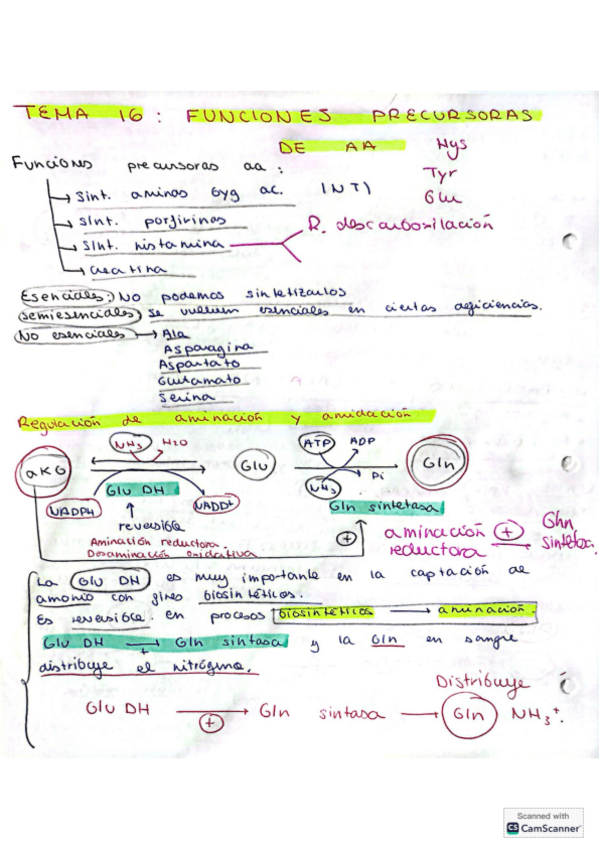 TEMA 16: FUNCIONES PRECURSORAS
DE AA
Funciones precursoras aa:
Hys
Tyr
Glu
Sint. aminas byg ac. (NT)
Sint. porfirinas
Sint. histamina
R. descarboxilación
creatina
Esenciales: No podemos sintetizarlos
semiesenciales Se vuelven esenciales en ciertas deficiencias.
No esenciales → Ala
Asparagina
Aspartato
Glutamato
Serina
Regulación de aminación y amidación
NH3 H2O
ATP ADP
αKG
Glu
Gln
Pi
NH3
Glu DH
NADPH
NADD+
Gln sintetasa
reversible
Aminación reductora.
Desaminación oxidativa
+
aminación reductora + → Ghn sintetasa.
La Glu DH es muy importante en la captación de
amonio con fines biosintéticos.
Es reversible. en procesos biosintéticos → aminación.
Glu DH →+ Gln sintasa y la Gln en sangre
distribuye el nitrógeno.
Distribuye
Glu DH → + Gln sintasa → Gln NH3+.
Scanned with
CS CamScanner